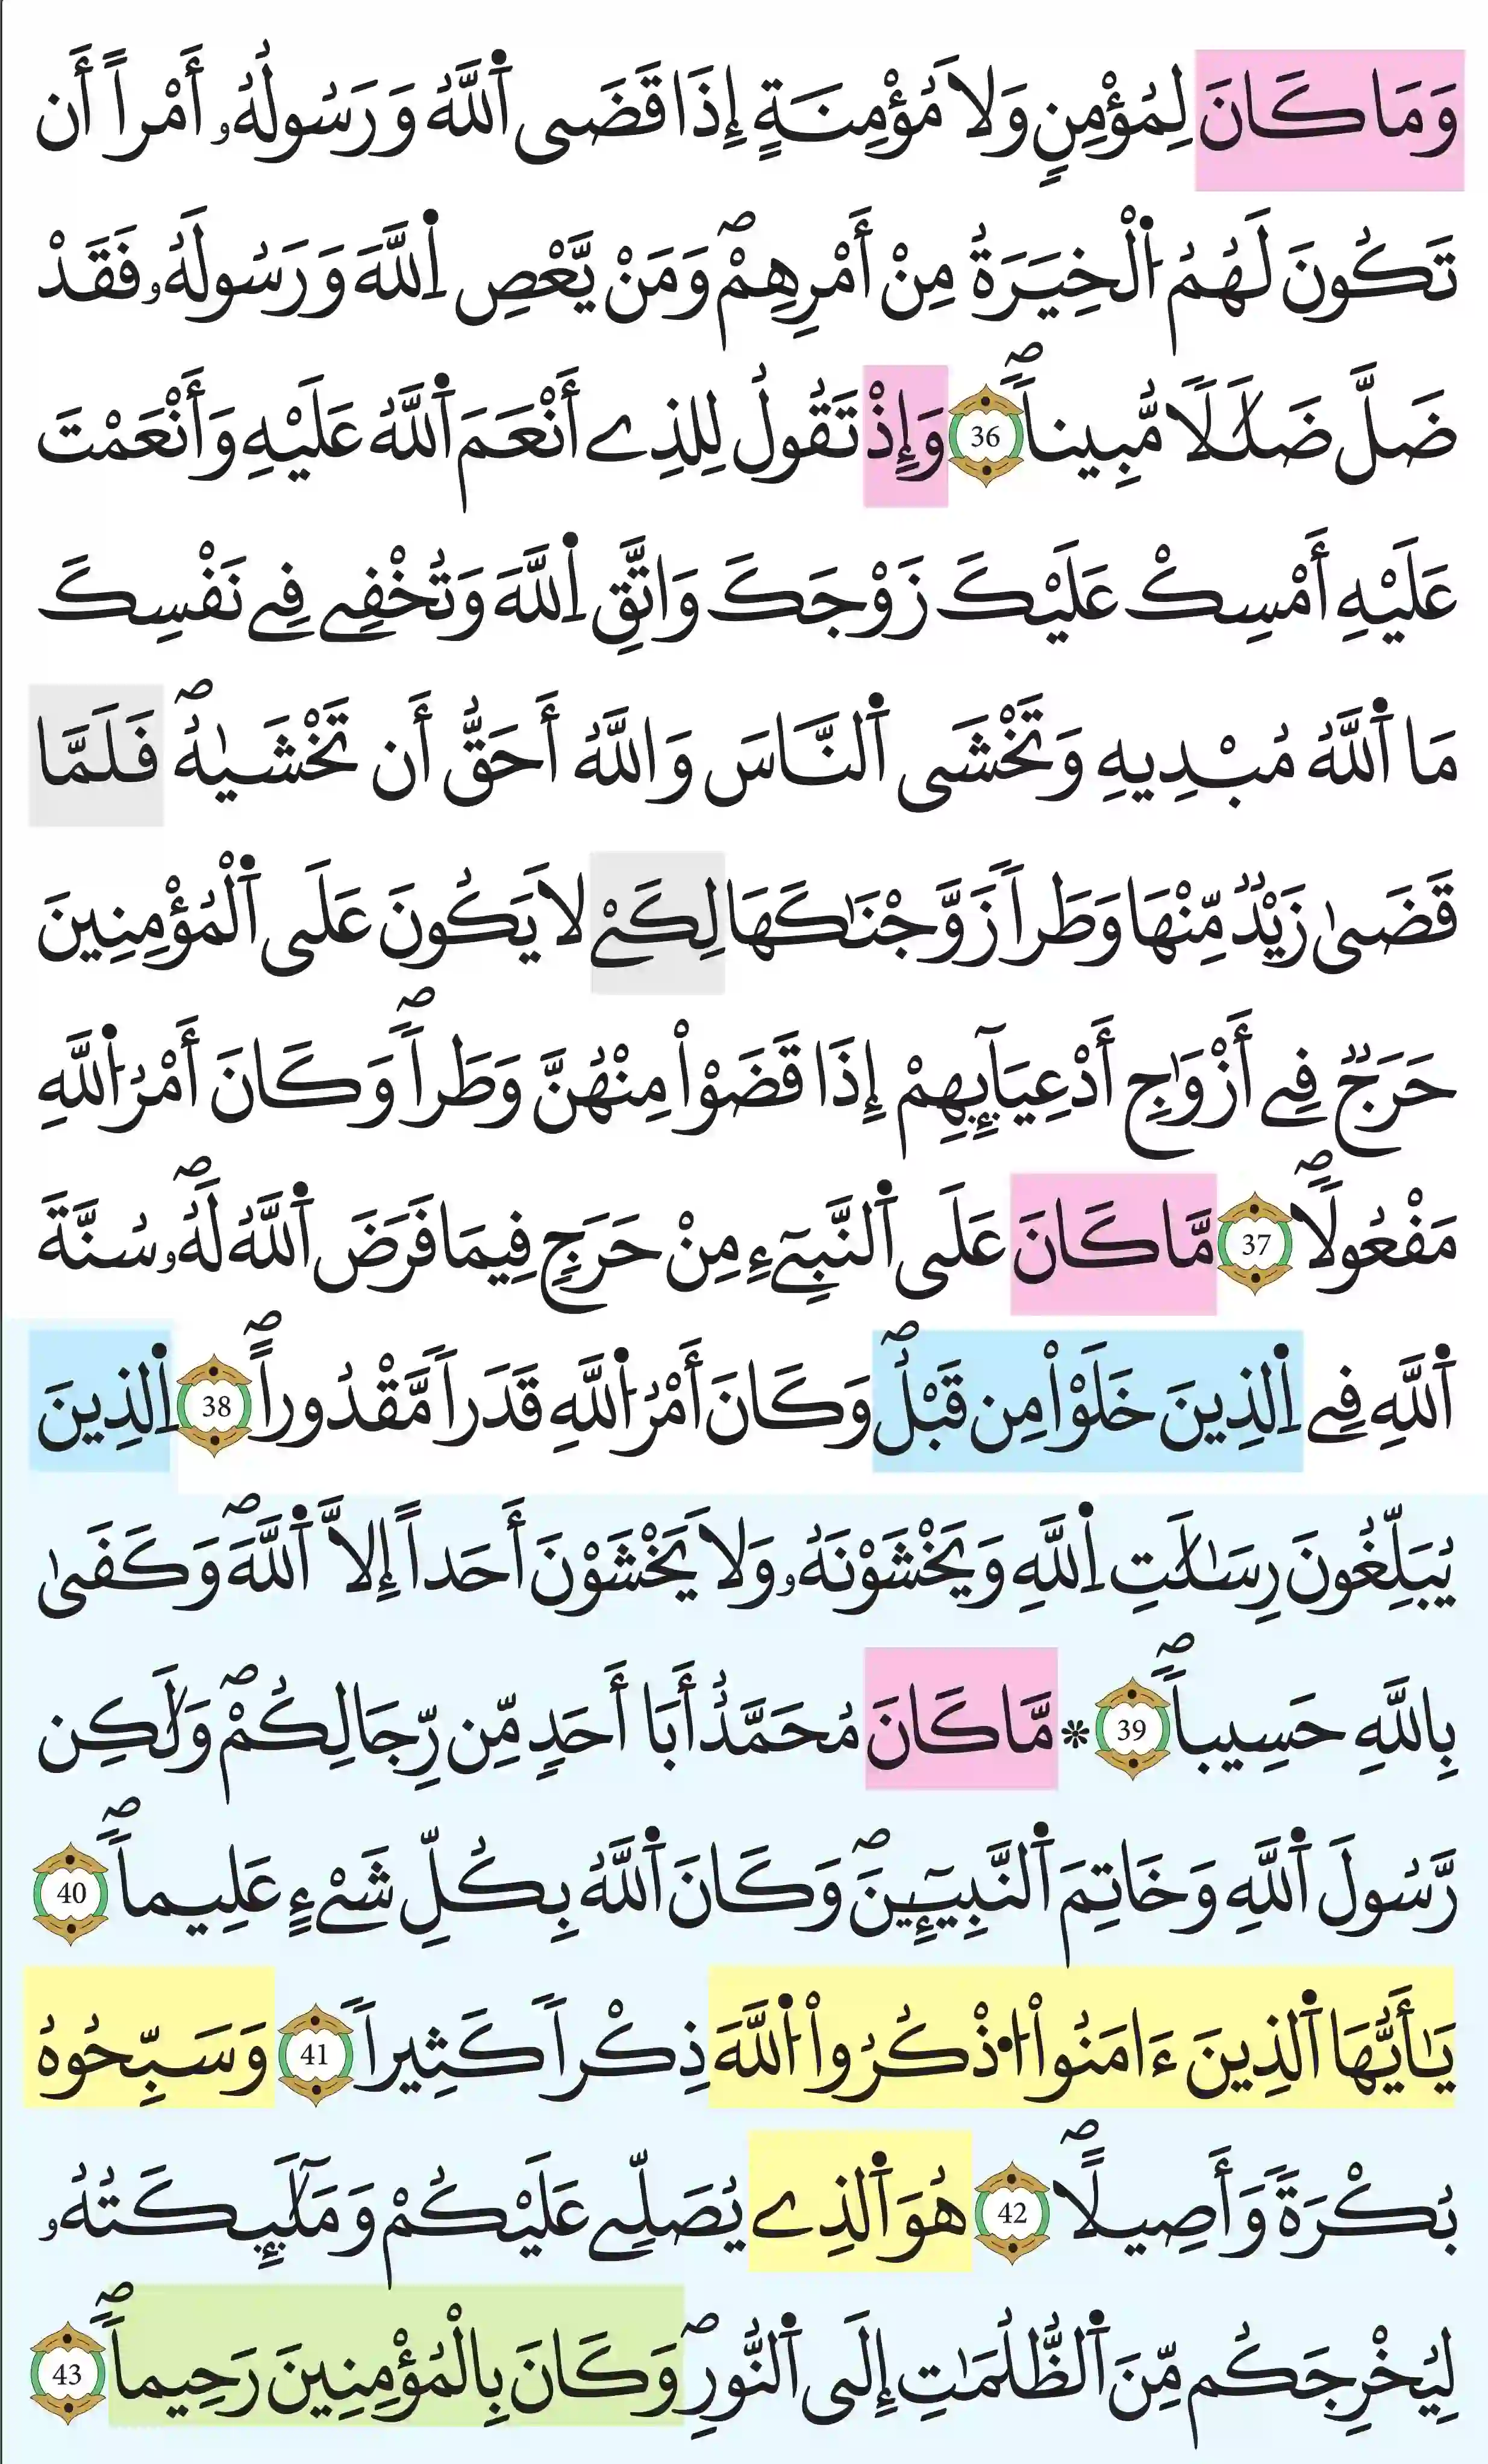 وَمَا كَانَ لِمُؤْمِنٍ وَلَا مُؤْمِنَةٍ إِذَا قَضَى اَ۬للَّهُ وَرَسُولُهُۥ أَمْراً أَن
تَكُونَ لَهُمُ اُ۬لْخِيَرَةُ مِنْ أَمْرِهِمْۖ وَمَنْ يَّعْصِ اِ۬للَّهَ وَرَسُولَهُۥ فَقَدْ
ضَلَّ ضَلَٰلًا مُّبِيناًۖ 36 وَإِذْ تَقُولُ لِلذِےٓ أَنْعَمَ اَ۬للَّهُ عَلَيْهِ وَأَنْعَمْتَ
عَلَيْهِ أَمْسِكْ عَلَيْكَ زَوْجَكَ وَاتَّقِ اِ۬للَّهَ وَتُخْفِے فِے نَفْسِكَ
مَا اَ۬للَّهُ مُبْدِيهِ وَتَخْشَى اَ۬لنَّاسَ وَاللَّهُ أَحَقُّ أَن تَخْشَيٰهُۖ فَلَمَّا
قَضَىٰ زَيْدٌ مِّنْهَا وَطَراً زَوَّجْنَٰكَهَا لِكَےْ لَا يَكُونَ عَلَى اَ۬لْمُؤْمِنِينَ
حَرَجٌ فِےٓ أَزْوَٰجِ أَدْعِيَآئِهِمْ إِذَا قَضَوْاْ مِنْهُنَّ وَطَراًۖ وَكَانَ أَمْرُ اُ۬للَّهِ
مَفْعُولًاۖ 37 مَّا كَانَ عَلَى اَ۬لنَّبِےٓءِ مِنْ حَرَجٍ فِيمَا فَرَضَ اَ۬للَّهُ لَهُۥۖ سُنَّةَ
اَ۬للَّهِ فِے اِ۬لذِينَ خَلَوْاْ مِن قَبْلُۖ وَكَانَ أَمْرُ اُ۬للَّهِ قَدَراً مَّقْدُوراًۖ 38 اِ۬لذِينَ
يُبَلِّغُونَ رِسَٰلَٰتِ اِ۬للَّهِ وَيَخْشَوْنَهُۥ وَلَا يَخْشَوْنَ أَحَداً إِلَّا اَ۬للَّهَۖ وَكَفَىٰ
بِاللَّهِ حَسِيباًۖ 39 * مَّا كَانَ مُحَمَّدٌ أَبَا أَحَدٍ مِّن رِّجَالِكُمْۖ وَلَٰكِن
رَّسُولَ اَ۬للَّهِ وَخَاتِمَ اَ۬لنَّبِيٓـِٕينَۖ وَكَانَ اَ۬للَّهُ بِكُلِّ شَےْءٍ عَلِيماًۖ 40
يَٰأَيُّهَا اَ۬لذِينَ ءَامَنُواْ اُ۟ذْكُرُواْ اُ۬للَّهَ ذِكْراً كَثِيراً 41 وَسَبِّحُوهُ
بُكْرَةً وَأَصِيلًاۖ 42 هُوَ اَ۬لذِے يُصَلِّے عَلَيْكُمْ وَمَلَٰٓئِكَتُهُۥ
لِيُخْرِجَكُم مِّنَ اَ۬لظُّلُمَٰتِ إِلَى اَ۬لنُّورِۖ وَكَانَ بِالْمُؤْمِنِينَ رَحِيماًۖ 43